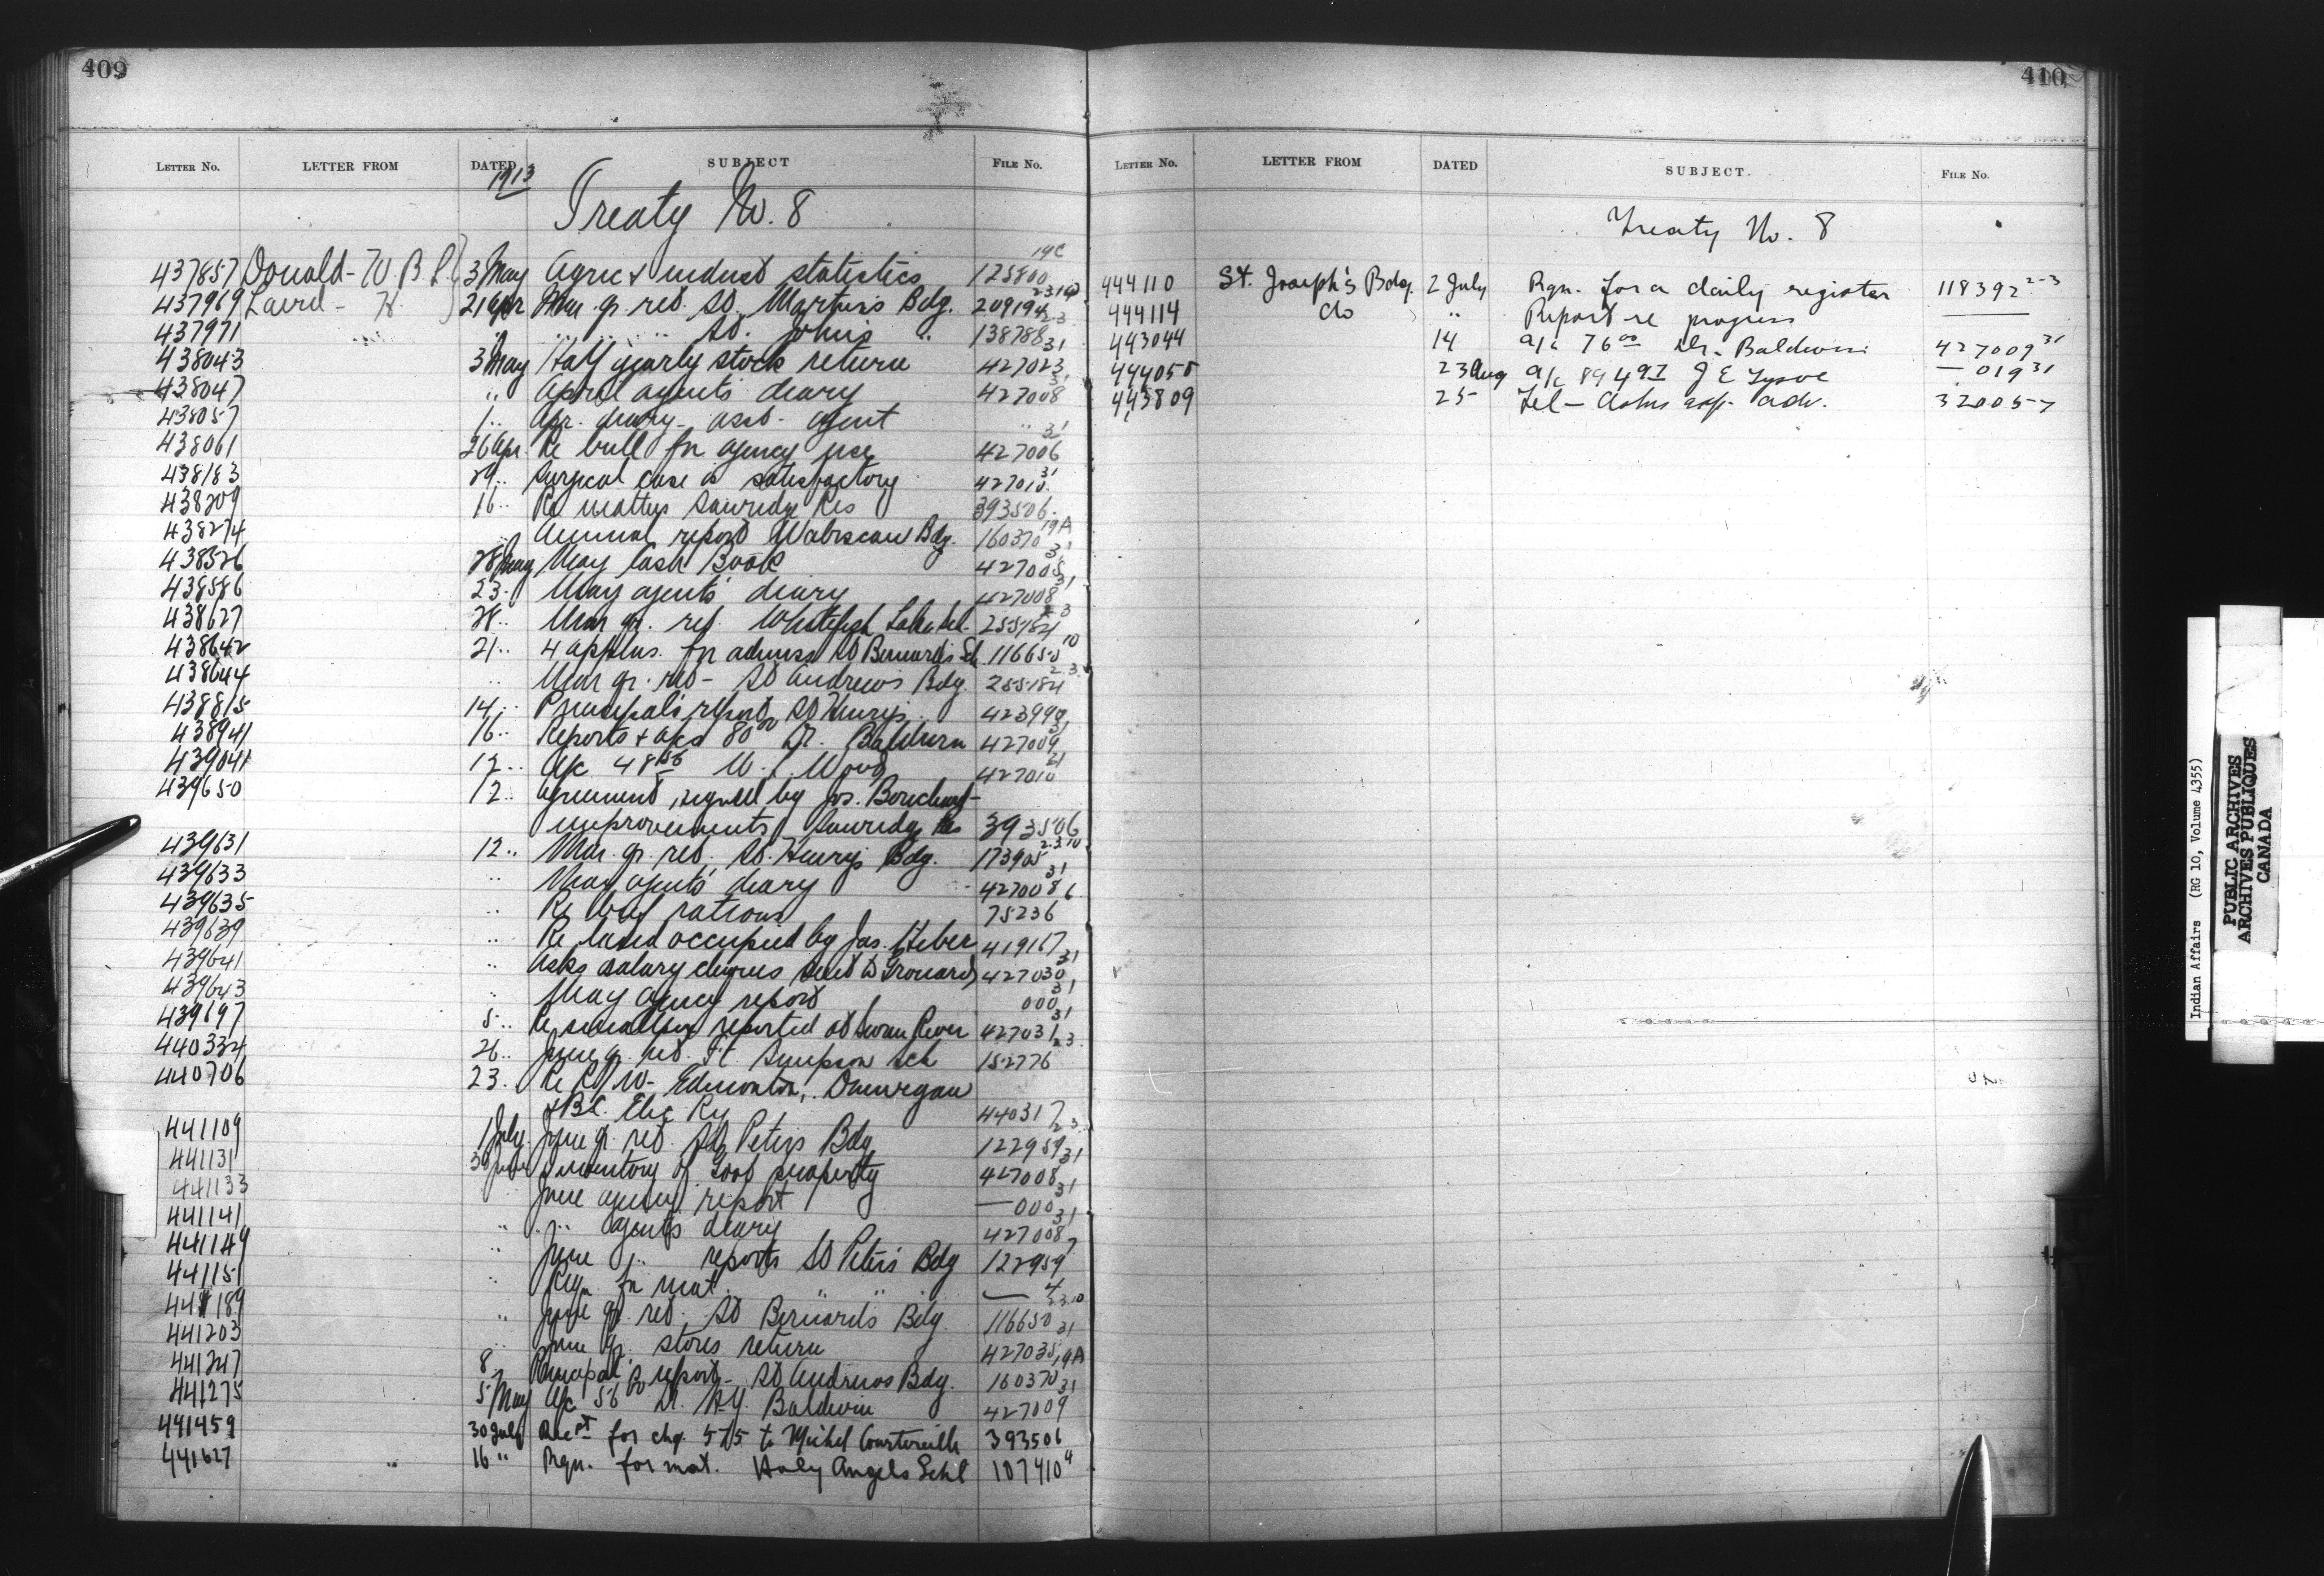 409
LETTER No. LETTER FROM DATED SUBJECT FILE No.
1913
Treaty No. 8
437857 Donald - W. B. L. 3 May Agric & indust statistics 125800 19C
437969 Laird - H. 21 Apr Mar qr. ret. St. Martin's Bdg. 209194
437971 " " " " St. John's " 138788
438043 3 May Half yearly stock return 427023 31
438047 " April agents diary 427008
438057 1 " Apr. diary - asst - agent "
438061 26 Apr. Re bull for agency use 427006 31
438183 29 " Surgical case is satisfactory 427010 31
438209 16 " Re matters Sawridge Res 393506
438274 " Annual report Wabiscaw Bdg. 160370 19A
438326 28 May May Cash Book 427005 31
438586 23 " May agents' diary 427008 31
438627 28 " Mar qr. ret. Whitefish Lake 255184 2-3
438642 21 " 4 applns. for admiss St Bernard's Sch 116650 10
438644 " Mar qr. ret - St Andrew's Bdg. 255184 2.3.
438815 14 " Principal's report St Henry's 423990
438941 16 " Reports & a/cs 80 00 Dr. Baldwin 427009 31
439041 12 " A/c 48 W. Wood 427010 31
439650 12 " Agreement, signed by Jos. Bouchard -
improvements, Sawridge Res 393506
439631 12 " Mar. qr. ret. St. Henry's Bdg. 173905 2.3.10
439633 " May agents' diary 427008 31
439635 " Re beef rations 75236
439639 " Re land occupied by Jas. 419167
439641 " Asks salary cheques sent to Grouard 427030 31
439643 " May agency report 000 31
439697 5 " Re smallpox reported at Swan River 427031 31
440334 26 " June qr. ret. Ft. Simpson Sch 152776 2.3
440706 23 " Re R/W - Edmonton, Dunvegan
& B.C. Elec Ry 440317
441109 1 July June qr. ret. St Peter's Bdg 122959 2.3
441131 30 June Inventory of Govt property 427008 31
441133 June agency report — 000 31
441141 " " agents diary 427008 31
441149 " June " reports St Peter's Bdg 122959 7
441151 " Reqn. for mat. " " — 4
441189 " June qr. ret. St Bernard's Bdg. 116650 2.3.10
441203 " June qr. stores return 427035 31
441247 8 " Principal's report - St Andrews Bdg. 160370 19A
441275 5 May A/c 56 00 Dr. Baldwin 427009 31
441459 30 July Rect for chq. 575 to Michel Courtoreille 393506
441627 " 16 " Rqn. for mat. Holy Angels Schl 107410 4
410
LETTER No. LETTER FROM DATED SUBJECT. FILE No.
Treaty No. 8
444110 St. Joseph's Bdg. 2 July Rqn. for a daily register 118392 2-3
444114 do " Report re progress ——
443044 14 a/c 76 00 Dr. Baldwin 427009 31
444055 23 Aug a/c 89 49 J E — 019 31
443809 25 Tel - Asks adv. 320057
Indian Affairs (RG 10, Volume 4355)
PUBLIC ARCHIVES
ARCHIVES PUBLIQUES
CANADA